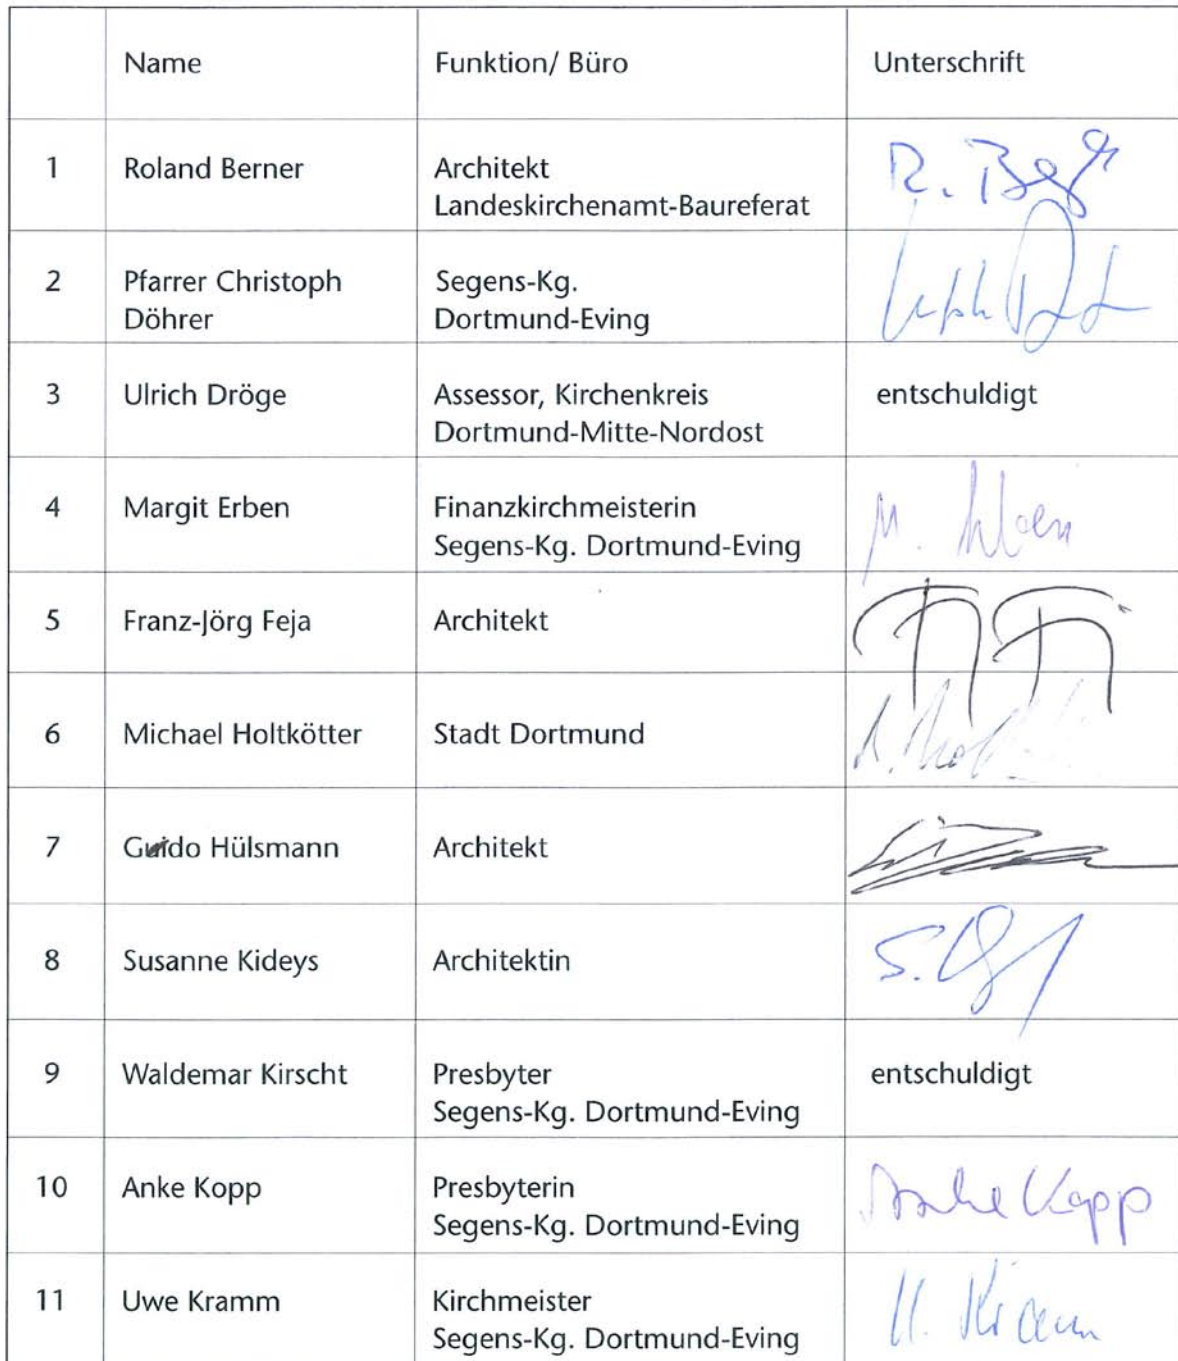 Name Funktion/ Büro Unterschrift
1 Roland Berner Architekt
Landeskirchenamt-Baureferat
2 Pfarrer Christoph Segens-Kg.
Döhrer Dortmund-Eving
3 Ulrich Dröge Assessor, Kirchenkreis entschuldigt
Dortmund-Mitte-Nordost
4 Margit Erben Finanzkirchmeisterin
Segens-Kg. Dortmund-Eving
5 Franz-Jörg Feja Architekt
6 Michael Holtkötter Stadt Dortmund
7 Guido Hülsmann Architekt
8 Susanne Kideys Architektin
9 Waldemar Kirscht Presbyter entschuldigt
Segens-Kg. Dortmund-Eving
10 Anke Kopp Presbyterin Anke Kopp
Segens-Kg. Dortmund-Eving
11 Uwe Kramm Kirchmeister U. Kramm
Segens-Kg. Dortmund-Eving